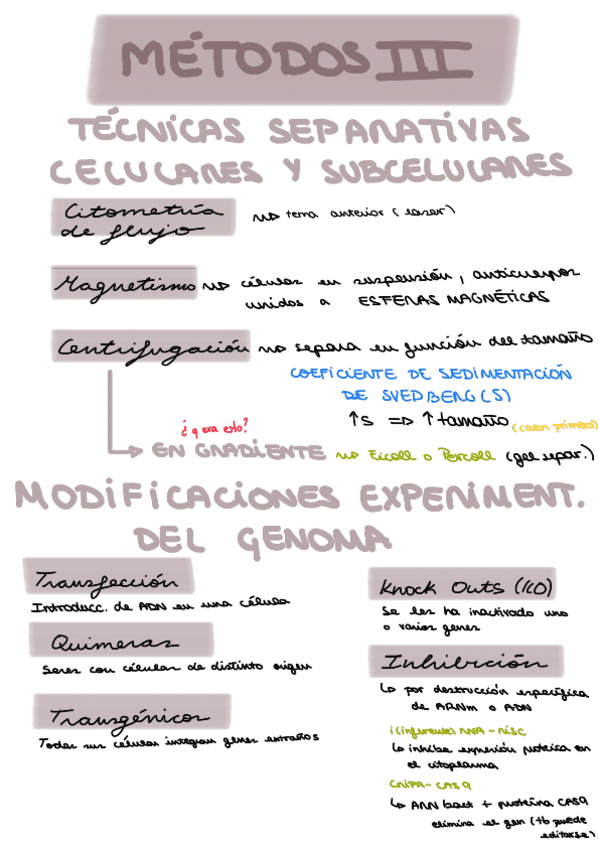 MÉTODOS III
TÉCNICAS SEPARATIVAS
CELULARES Y SUBCELULARES
Citometría
de flujo
tema anterior (laser)
Magnetismo
células en suspensión, anticuerpos
unidos a ESFERAS MAGNÉTICAS
Centrifugación
separa en función del tamaño
COEFICIENTE DE SEDIMENTACIÓN
DE SVEDBERG (S)
↑S => ↑tamaño (caen primero)
¿q era esto?
EN GRADIENTE Ficoll o Percoll (gel separ.)
MODIFICACIONES EXPERIMENT.
DEL GENOMA
Transfección
Introducc. de ADN en una célula
Quimeras
Seres con células de distinto origen
Transgénicos
Todas sus células integran genes extraños
Knock Outs (KO)
Se les ha inactivado uno
o varios genes
Inhibición
↳ por destrucción específica
de ARNm o ADN
i(inferente) RNA - RISC
↳ inhibe expresión proteica en
el citoplasma
CRIPA - CAS9
↳ ARN bact + proteína CAS9
elimina el gen (tb puede
editarse)